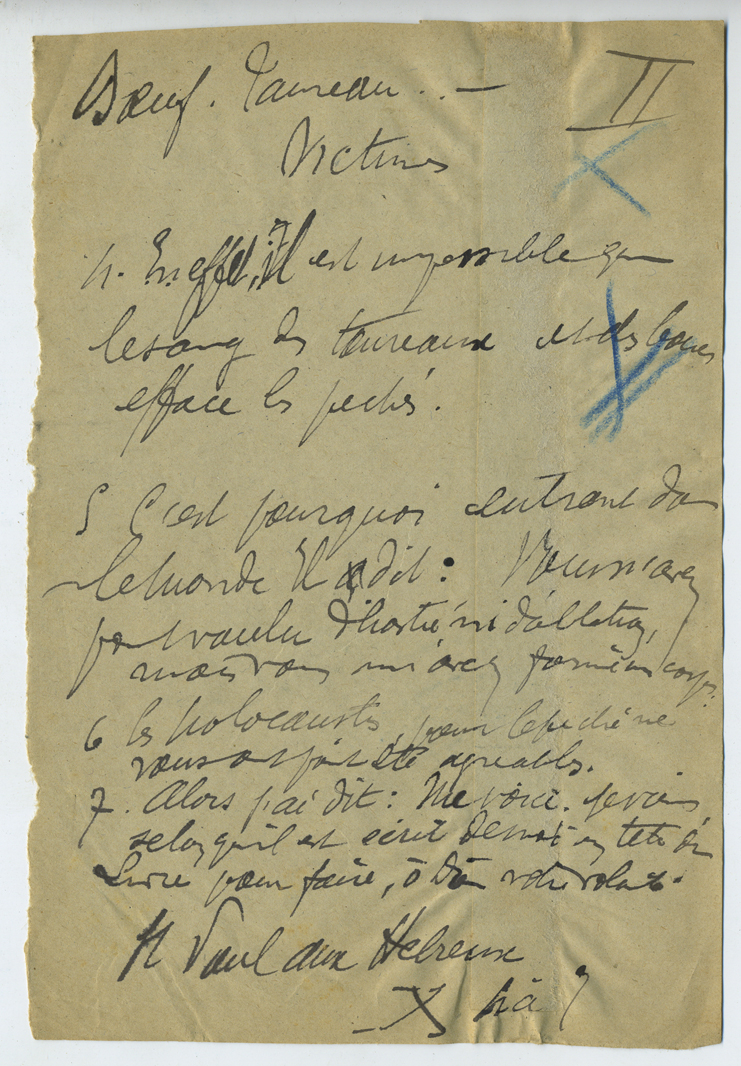 Bœuf. Taureau.. — II
Victimes
4. En effet, il est impossible que
le sang des taureaux et des boucs
efface les péchés.
5 C'est pourquoi entrant dans
le monde Il a dit : Vous n'avez
pas voulu d'hostie ni d'oblation,
mais vous m'avez formé un corps.
6 les holocaustes, pour le péché ne
vous ont point été agréables.
7. Alors j'ai dit : Me voici. je viens
selon qu'il est écrit de moi en tête du
Livre pour faire, ô Dieu votre volonté.
St Paul aux Hébreux
X 4 à 7